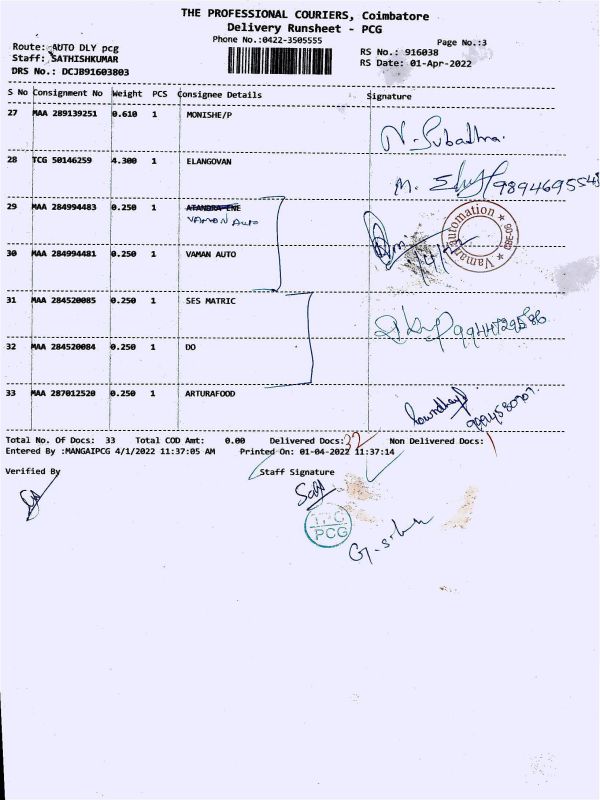 THE PROFESSIONAL COURIERS, Coimbatore
Delivery Runsheet - PCG
Phone No.:0422-3505555
Page No.:3
Route: AUTO DLY pcg
Staff: SATHISHKUMAR
DRS No.: DCJB91603803
RS No.: 916038
RS Date: 01-Apr-2022
S No Consignment No Weight PCS Consignee Details Signature
27 MAA 289139251 0.610 1 MONISHE/P
N. Subadhra.
28 TCG 50146259 4.300 1 ELANGOVAN
M. 9894695545
29 MAA 284994483 0.250 1
VAMAN Auto
Vaman automation CBE-06
30 MAA 284994481 0.250 1 VAMAN AUTO
1/4/22
31 MAA 284520085 0.250 1 SES MATRIC
9944729586
32 MAA 284520084 0.250 1 DO
33 MAA 287012520 0.250 1 ARTURAFOOD
Total No. Of Docs: 33 Total COD Amt: 0.00 Delivered Docs: 32 Non Delivered Docs: 1
Entered By :MANGAIPCG 4/1/2022 11:37:05 AM Printed On: 01-04-2022 11:37:14
Verified By Staff Signature
TPC
PCG